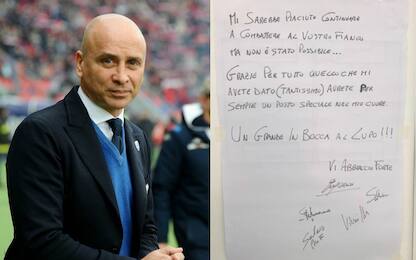 MI SAREBBE PIACIUTO CONTINUARE
A COMBATTERE AL VOSTRO FIANCO
MA NON È STATO POSSIBILE...
GRAZIE PER TUTTO QUELLO CHE MI
AVETE DATO (TANTISSIMO) AVRETE PER
SEMPRE UN POSTO SPECIALE NEL MIO CUORE.
UN GRANDE IN BOCCA AL LUPO!!!
VI ABBRACCIO FORTE